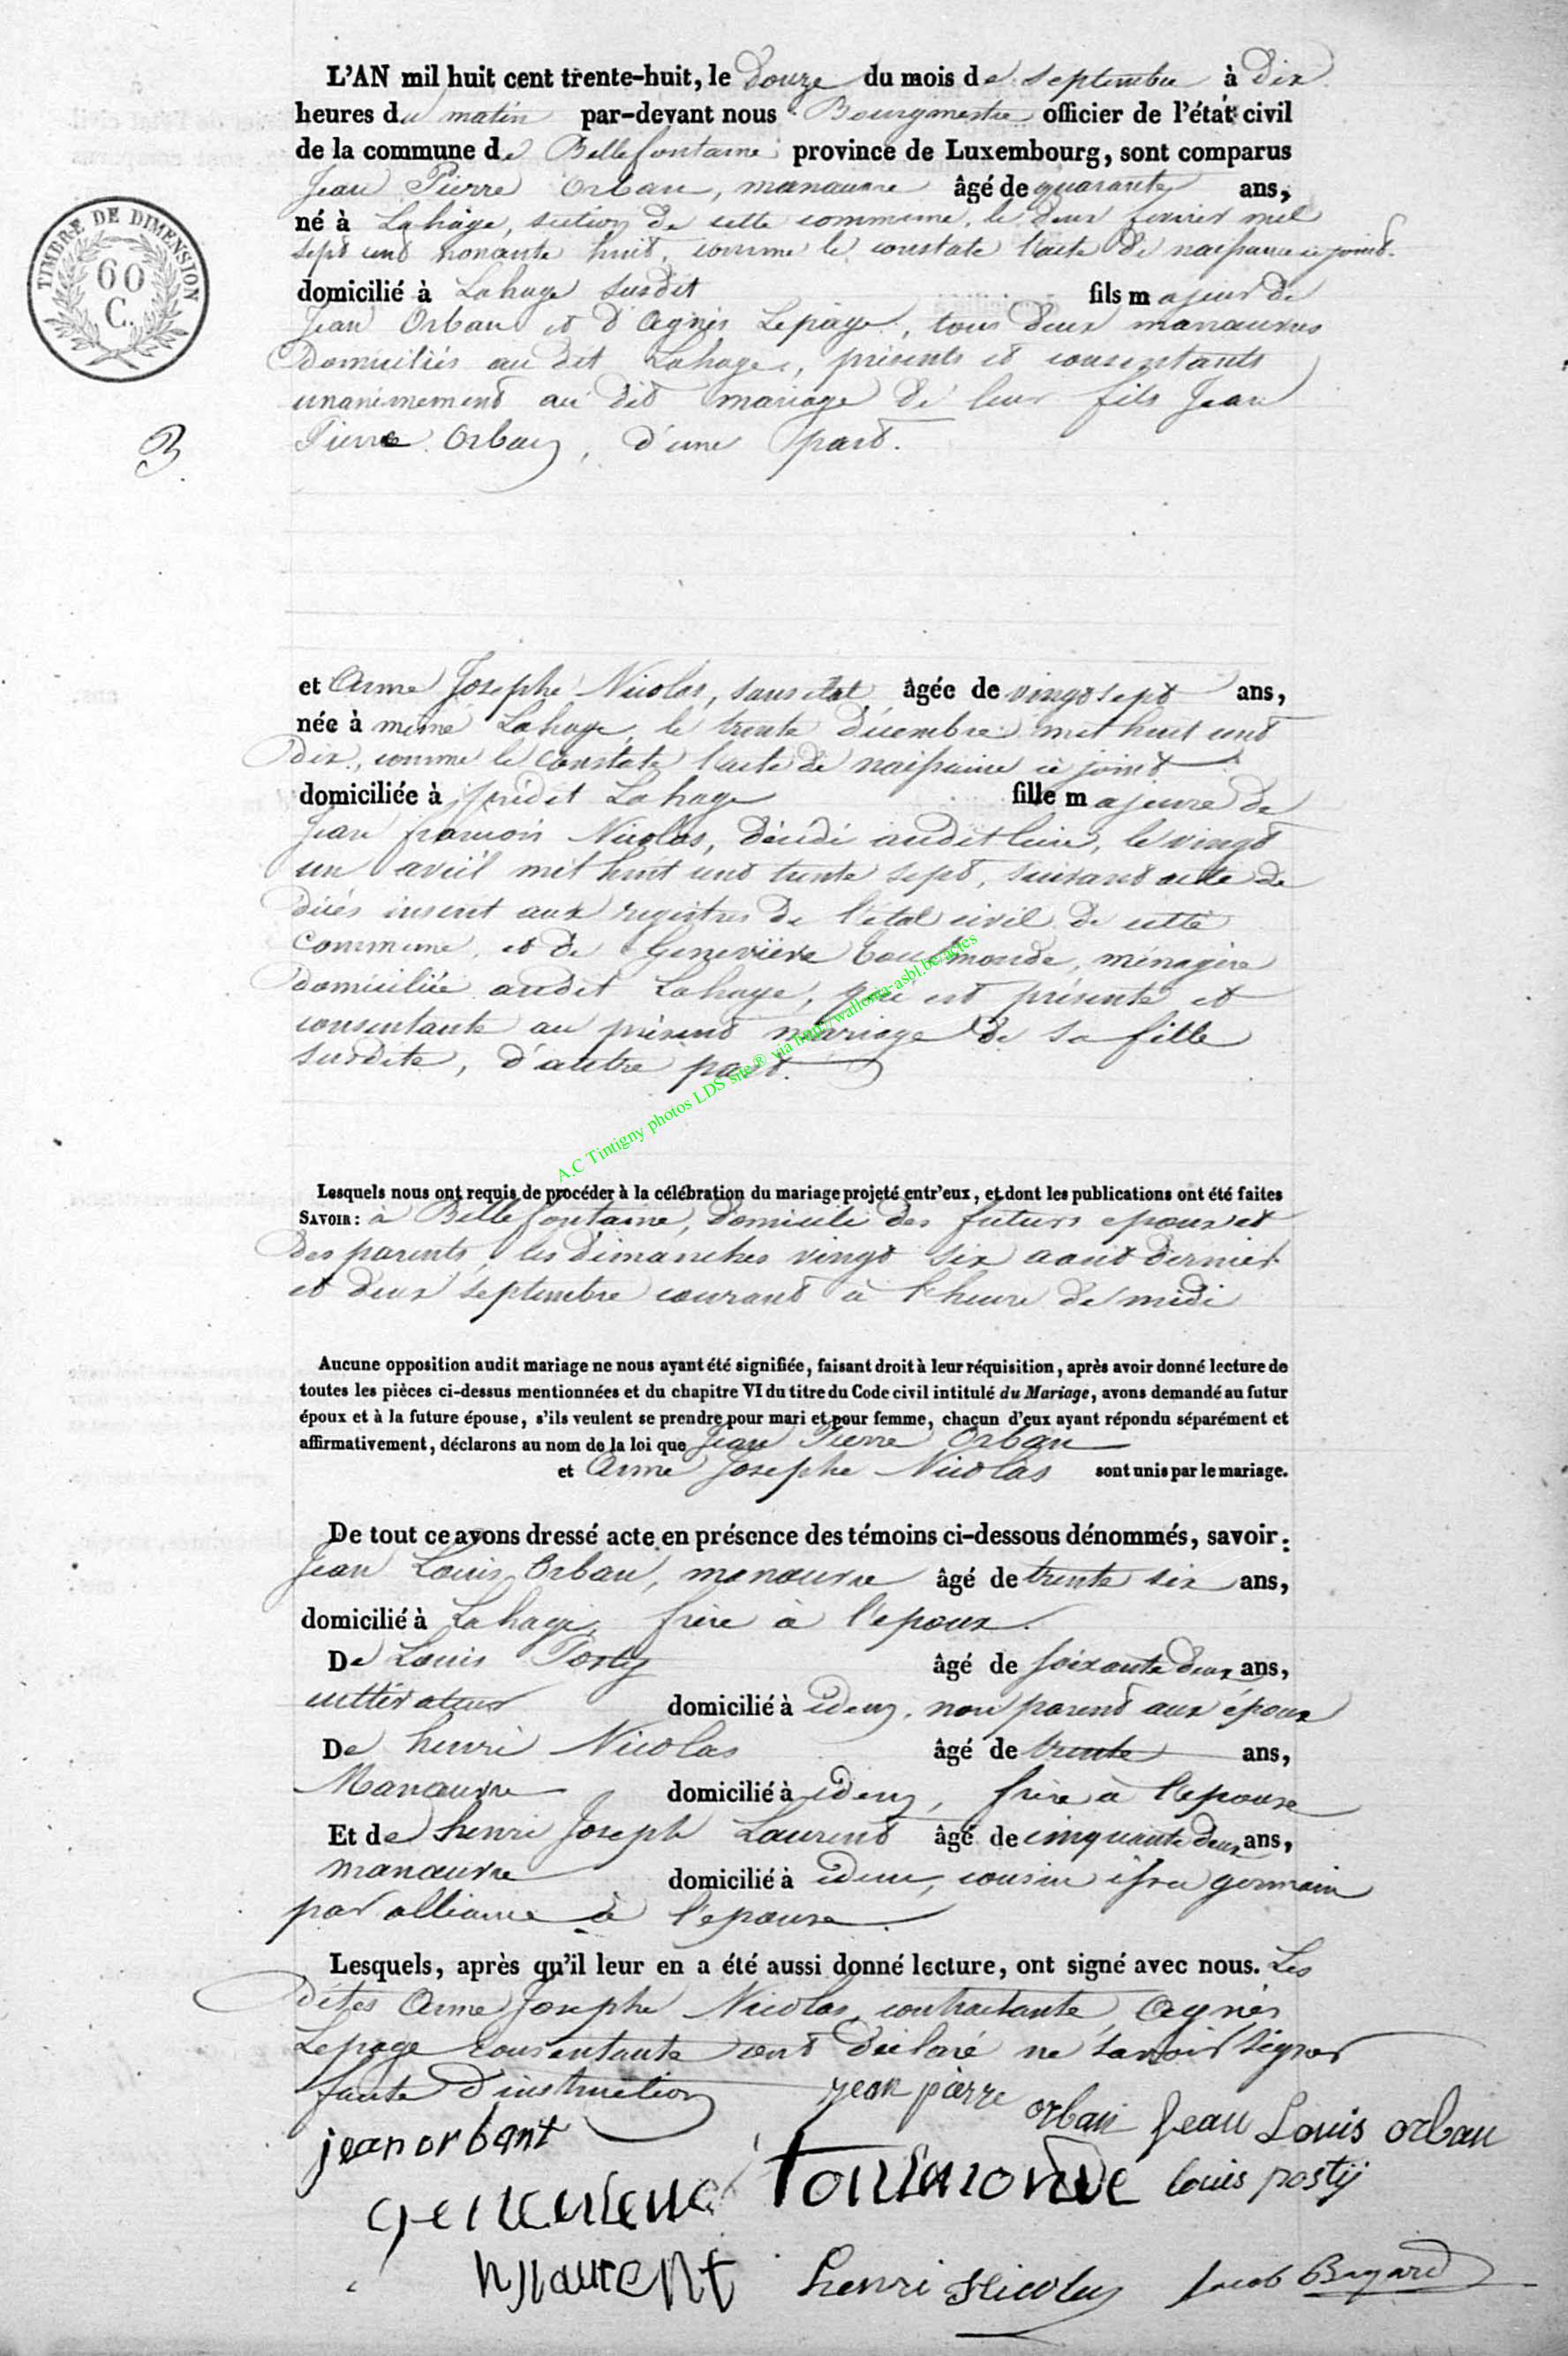 L'AN mil huit cent trente-huit, le Douze du mois de Septembre à Dix
heures du matin par-devant nous Bourgmestre officier de l'état civil
de la commune de Bellefontaine province de Luxembourg, sont comparus
Jean Pierre Orban, manœuvre âgé de quarante ans,
né à Lahage, section de cette commune, le deux fevrier mil
sept cent nonante huit, comme le constate l'acte de naissance ci joint.
domicilié à Lahage susdit fils majeur de
Jean Orban et d'Agnès Lepage, tous deux manœuvres
Domiciliés au dit Lahage, présents et consentants
unanimement au dit mariage de leur fils Jean
Pierre Orban, d'une part.
TIMBRE DE DIMENSION
60
C.
B
et Anne Josephe Nicolas, sans état âgée de vingt sept ans,
née à même Lahage, le trente Décembre mil huit cent
Dix, comme le constate l'acte de naissance ci joint
domiciliée à prédit Lahage fille majeure de
Jean françois Nicolas, décédé audit lieu, le vingt
un avril mil huit cent trente sept, suivant acte de
décès inscrit aux registres de l'état civil de cette
Commune, et de Geneviève Toutmonde, ménagère
domiciliée audit Lahage, qui est présente et
consentante au présent mariage de sa fille
susdite, d'autre part.
A.C Tintigny photos LDS site ® via http://wallonia-asbl.be/actes
Lesquels nous ont requis de procéder à la célébration du mariage projeté entr'eux, et dont les publications ont été faites
SAVOIR: à Bellefontaine, domicile des futurs epoux et
des parents, les dimanches vingt six aout dernier
et deux Septembre courant à l'heure de midi
Aucune opposition audit mariage ne nous ayant été signifiée, faisant droit à leur réquisition, après avoir donné lecture de
toutes les pièces ci-dessus mentionnées et du chapitre VI du titre du Code civil intitulé du Mariage, avons demandé au futur
époux et à la future épouse, s'ils veulent se prendre pour mari et pour femme, chacun d'eux ayant répondu séparément et
affirmativement, déclarons au nom de la loi que Jean Pierre Orban
et Anne Josephe Nicolas sont unis par le mariage.
De tout ce avons dressé acte en présence des témoins ci-dessous dénommés, savoir:
Jean Louis Orban, manœuvre âgé de trente six ans,
domicilié à Lahage, frère à l'epoux.
De Louis Postij âgé de soixante deux ans,
cultivateur domicilié à idem, non parent aux époux
De henri Nicolas âgé de trente ans,
Manœuvre domicilié à idem, frère à l'epouse
Et de henri Joseph Laurent âgé de cinquante deux ans,
manœuvre domicilié à idem, cousin issu germain
par alliance à l'epouse.
Lesquels, après qu'il leur en a été aussi donné lecture, ont signé avec nous. Les
dites Anne Josephe Nicolas contractante, Agnès
Lepage consentante ont déclaré ne savoir signer
faute d'instruction
jean pierre orban Jean Louis orban
jean orbant
genevieve toutmonde louis postij
hjlaurent henri Nicolas Jacob Bayard